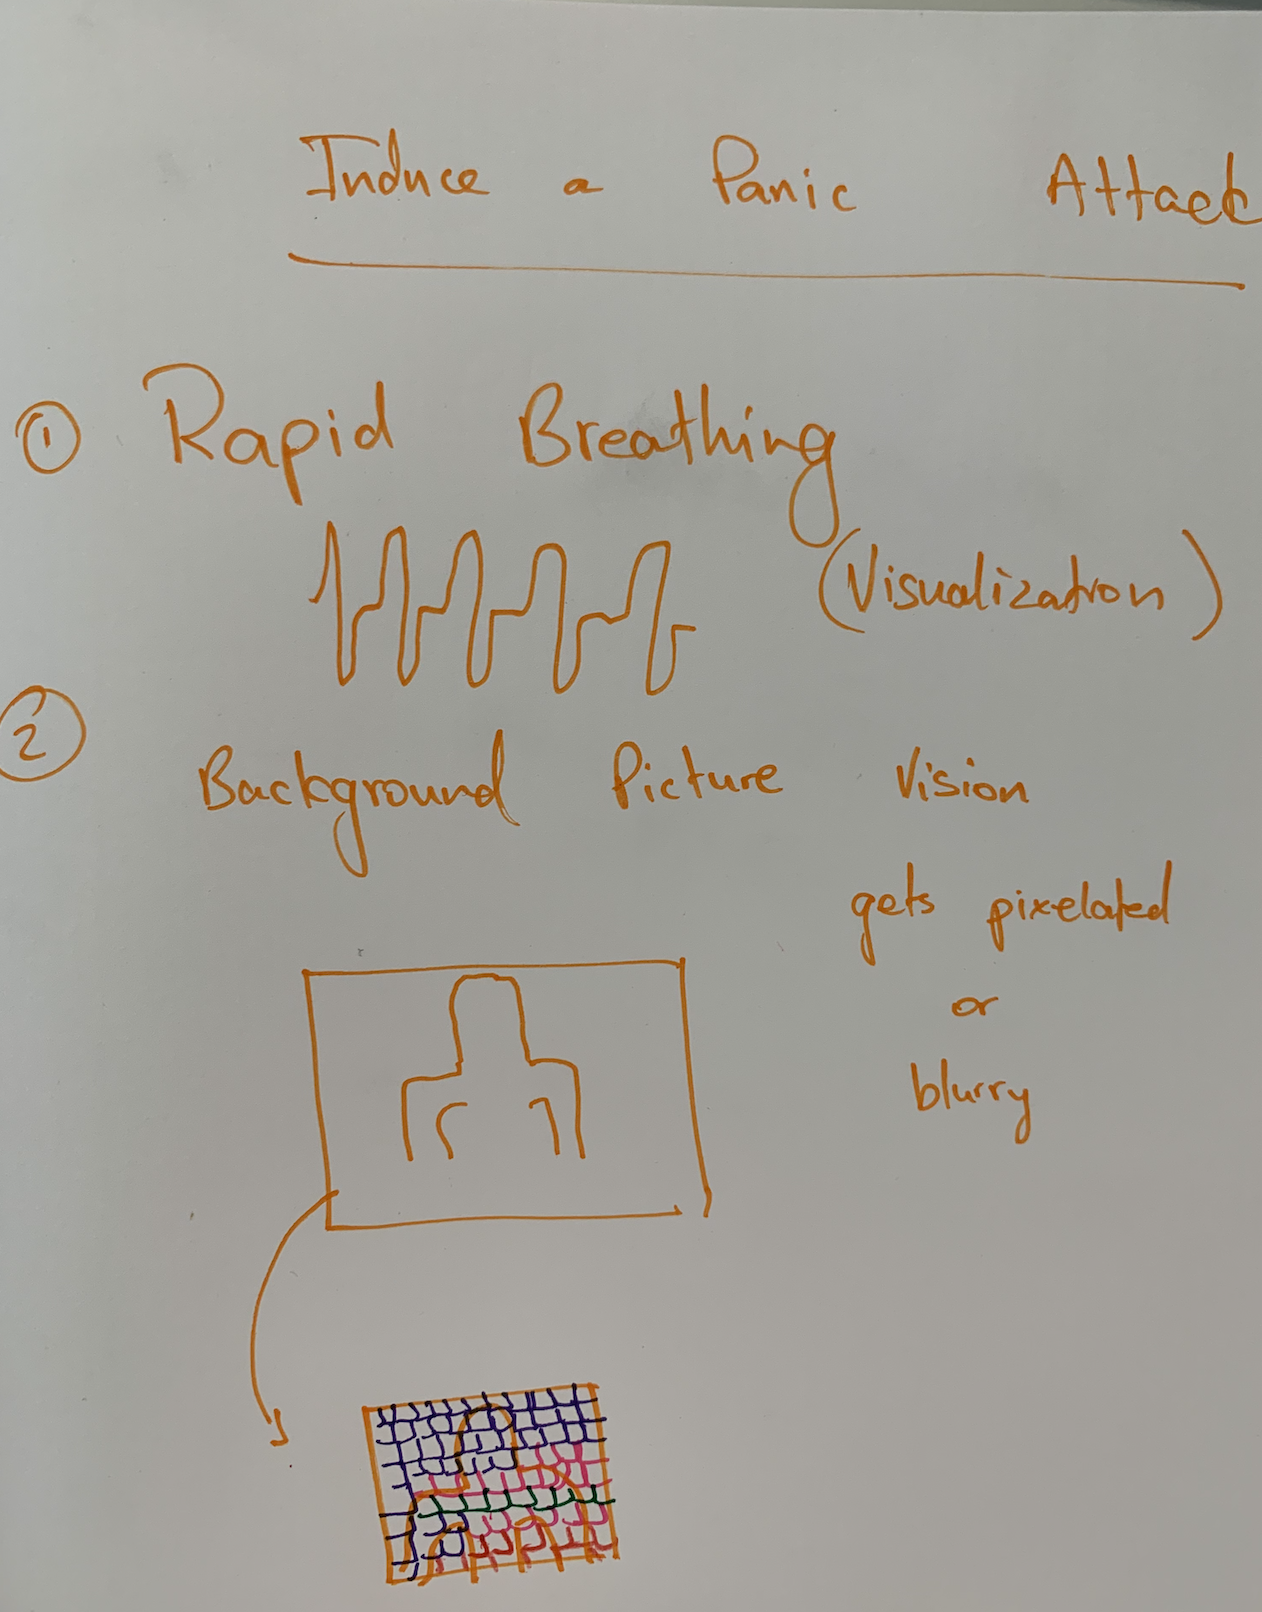 Induce a Panic Attack
1 Rapid Breathing
(Visualization)
2
Background Picture Vision
gets pixelated
or
blurry